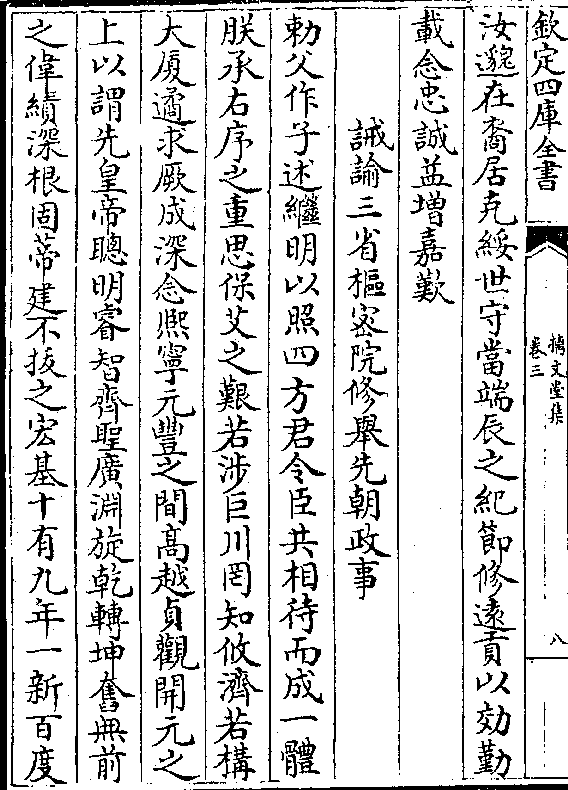 欽定四庫全書
摛文堂集
卷三
八
汝邈在裔居克綏世守當端辰之紀節修遠貢以効勤
載念忠誠益增嘉歎
誡諭三省樞宻院修舉先朝政事
勅父作子述繼明以照四方君令臣共相待而成一體
朕承右序之重思保艾之艱若涉巨川罔知攸濟若構
大厦遹求厥成深念熈寧元豐之間髙越貞觀開元之
上以謂先皇帝聰明睿智齊聖廣淵旋乾轉坤奮無前
之偉績深根固蔕建不拔之宏基十有九年一新百度